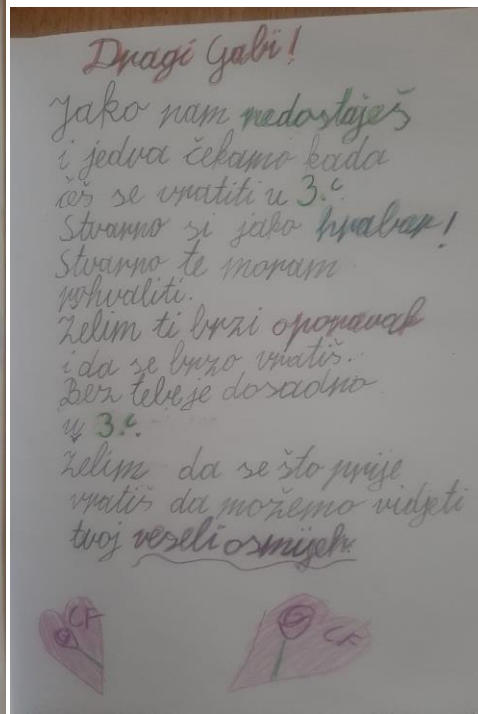 Dragi Gabi!
Jako nam nedostaješ
i jedva čekamo kada
ćeš se vratiti u 3.c.
Stvarno si jako hrabar!
Stvarno te moram
pohvaliti.
Želim ti brzi oporavak
i da se brzo vratiš.
Bez tebe je dosadno
u 3.c.
Želim da se što prije
vratiš da možemo vidjeti
tvoj veseli osmijeh.
CF
CF